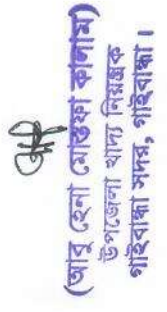 (আবু হেনা মোস্তফা কামাল)
উপজেলা খাদ্য নিয়ন্ত্রক
গাইবান্ধা সদর, গাইবান্ধা।